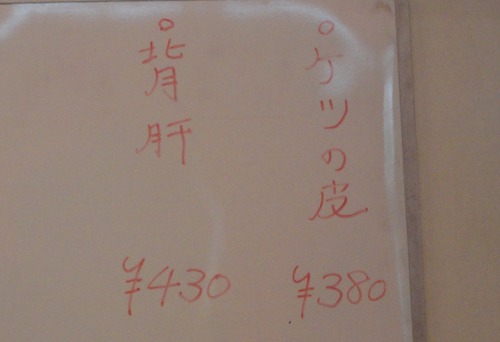 ケツの皮
¥380
背肝
¥430